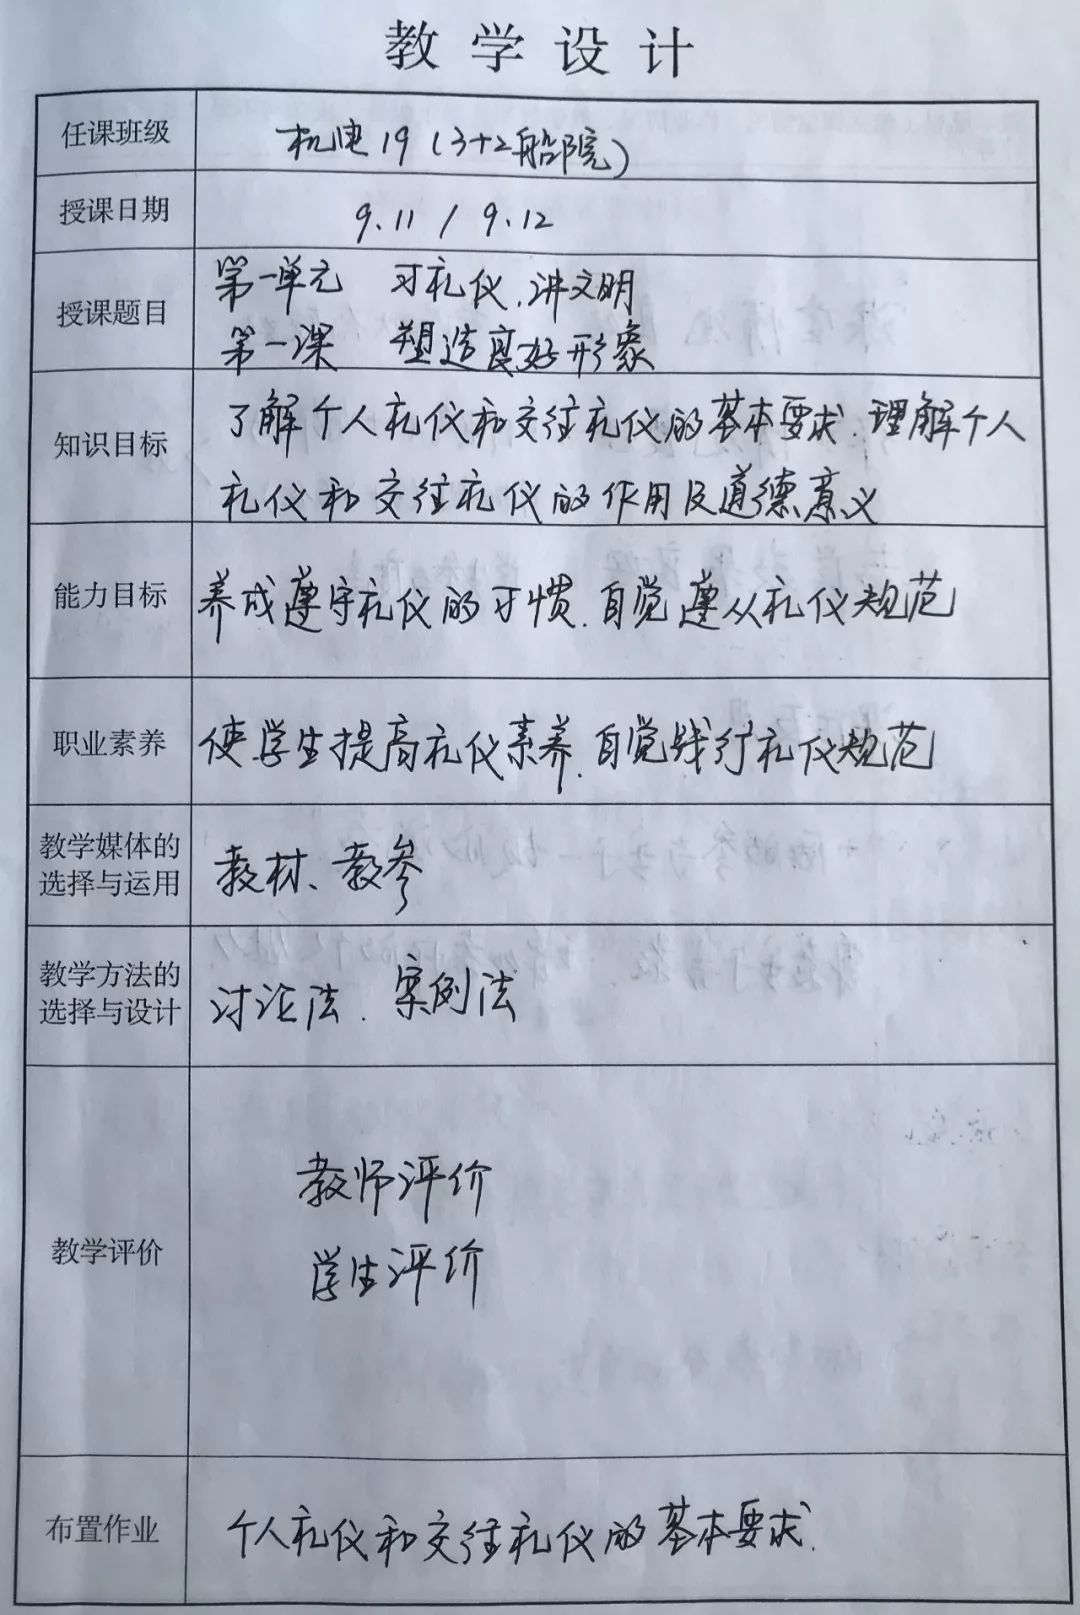 教学设计
任课班级
机电19（3+2船院）
授课日期
9.11 / 9.12
授课题目
第一单元 习礼仪,讲文明
第一课 塑造良好形象
知识目标
了解个人礼仪和交往礼仪的基本要求.理解个人
礼仪和交往礼仪的作用及道德意义
能力目标
养成遵守礼仪的习惯.自觉遵从礼仪规范
职业素养
使学生提高礼仪素养.自觉践行礼仪规范
教学媒体的
选择与运用
教材、教参
教学方法的
选择与设计
讨论法.案例法
教学评价
教师评价
学生评价
布置作业
个人礼仪和交往礼仪的基本要求.